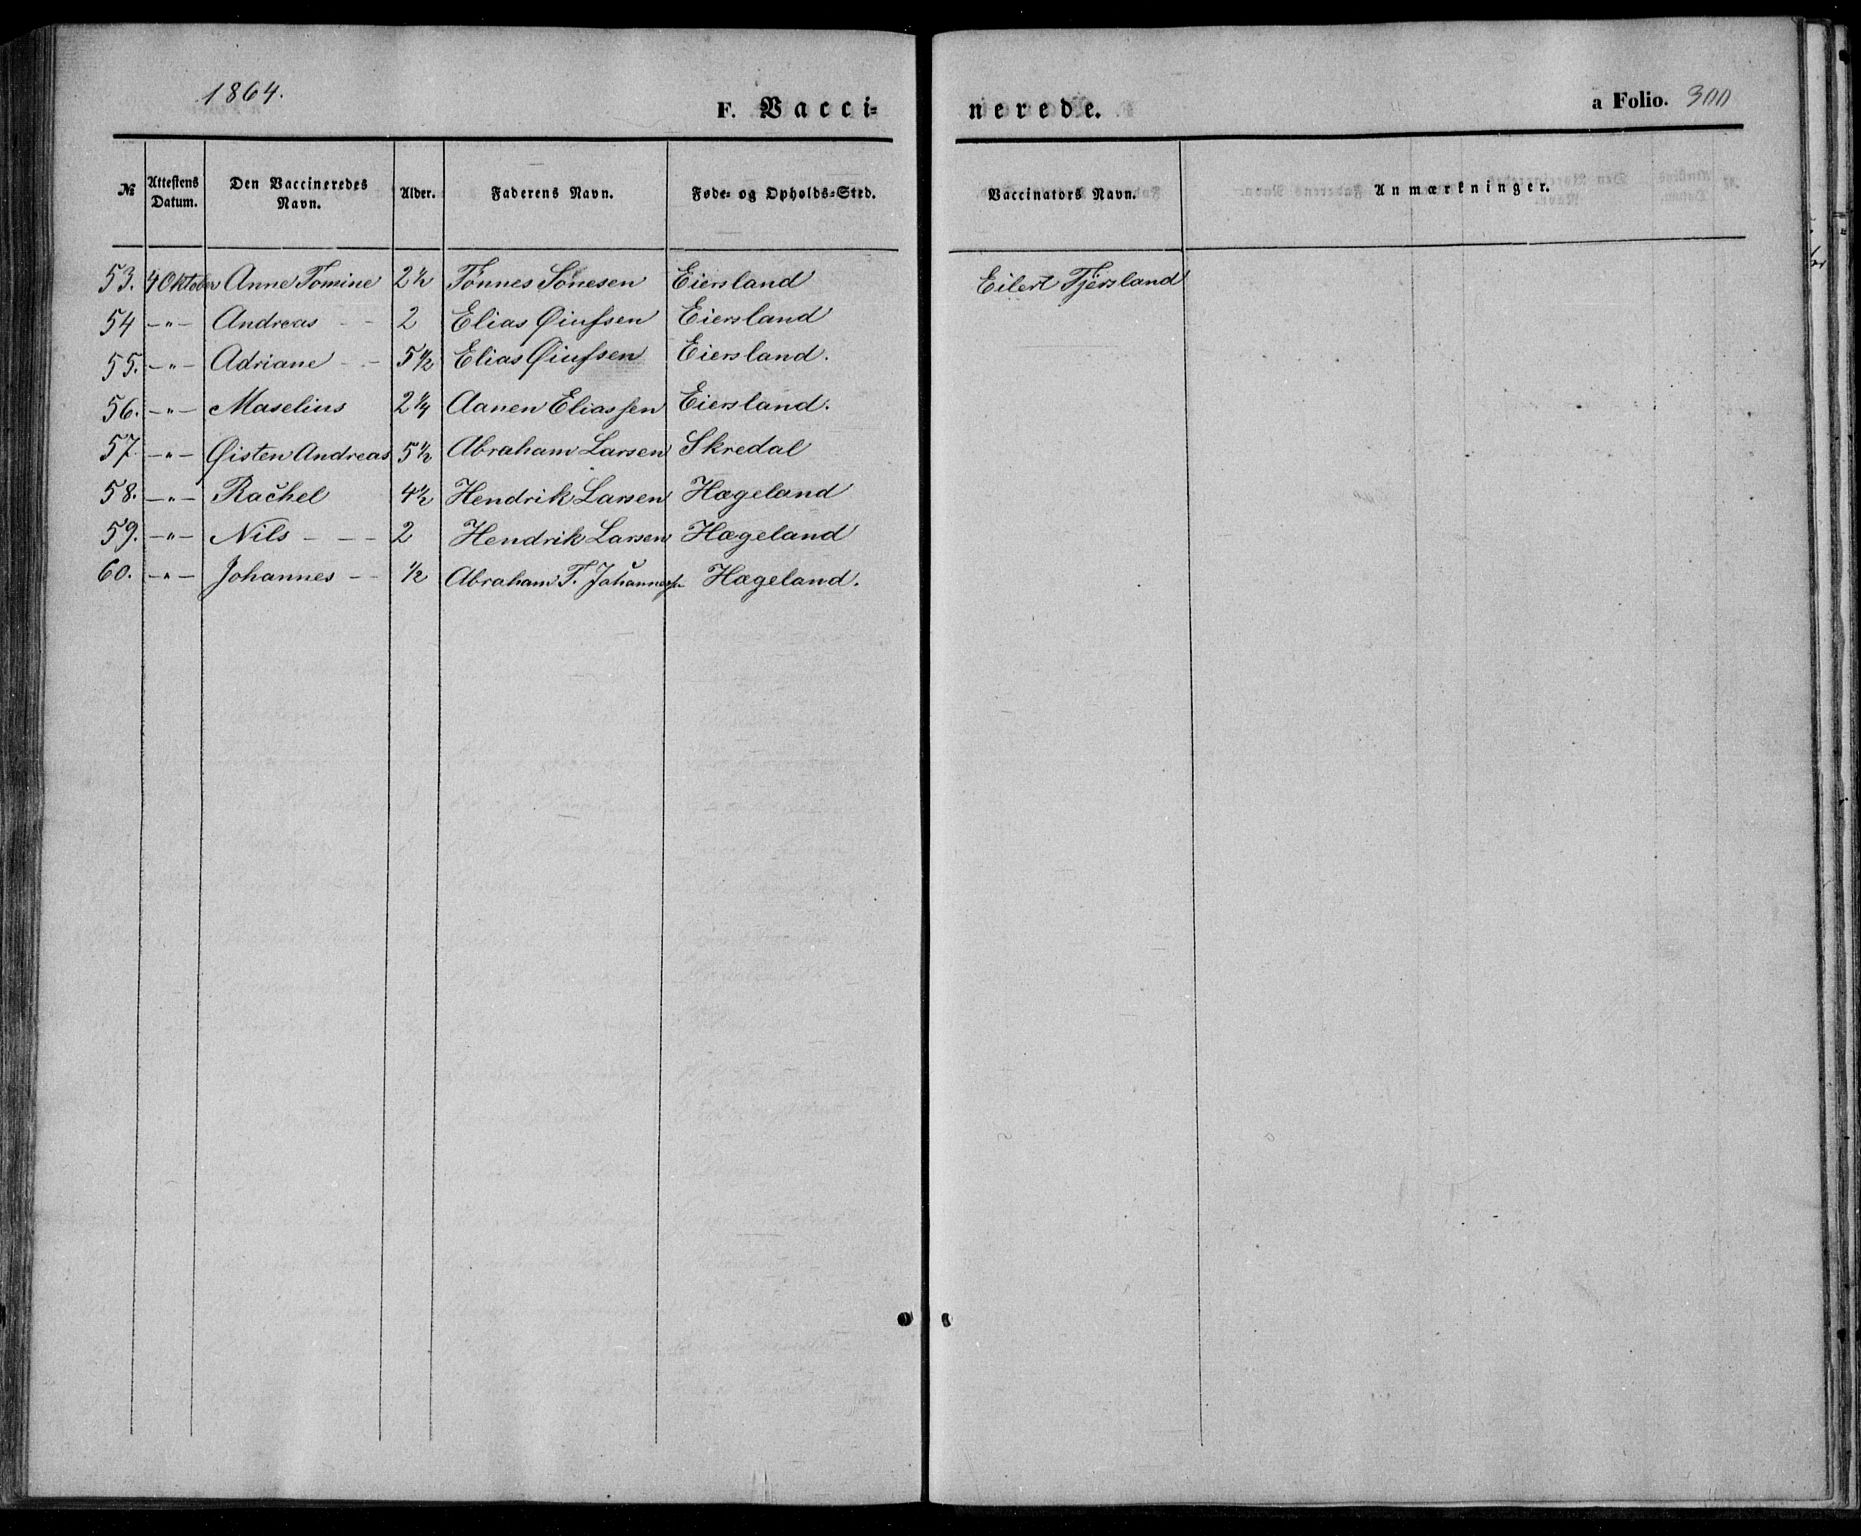 1864.
F. Vacci=
nerede.
a Folio. 300
№ | Attestens Datum. | Den Vaccineredes Navn. | Alder. | Faderens Navn. | Føde= og Opholds=Sted. | Vaccinators Navn. | Anmærkninger.
53. 4 Oktober Anne Tomine 2½ Tønnes Sønesen Eiersland Eilert Fjersland
54 –"– Andreas - - 2 Elias Øiufsen Eiersland
55. –"– Adriane - - 5½ Elias Øiufsen Eiersland.
56. –"– Maselius 2¼ Aanen Eliassen Eiersland.
57. –"– Øisten Andreas 5½ Abraham Larsen Skredal
58. –"– Rachel 4½ Hendrik Larsen Hægeland
59. –"– Nils - - - 2 Hendrik Larsen Hægeland
60. –"– Johannes - - ½ Abraham T. Johannessen Hægeland.